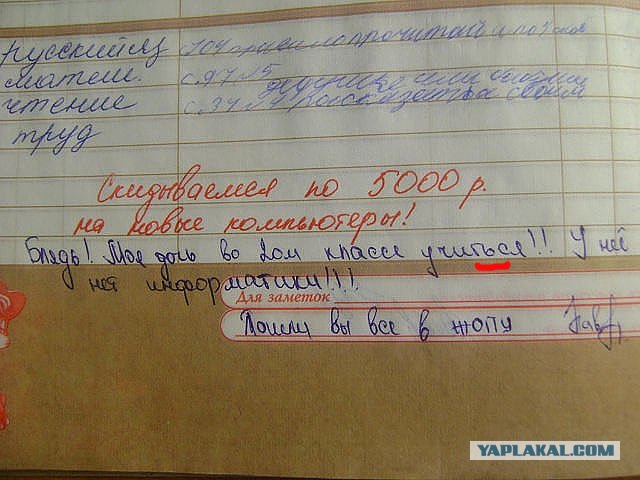 русский яз с.104 правило прочитать и
матем. с.97 №5
чтение с.34 №4 своим
труд
Скидываемся по 5000 р.
на новые компьютеры!
Блядь! Моя дочь во 2ом классе учиться!! У неё
нет информатики!!!
Для заметок
Пошли вы все в жопу
YAPLAKAL.COM